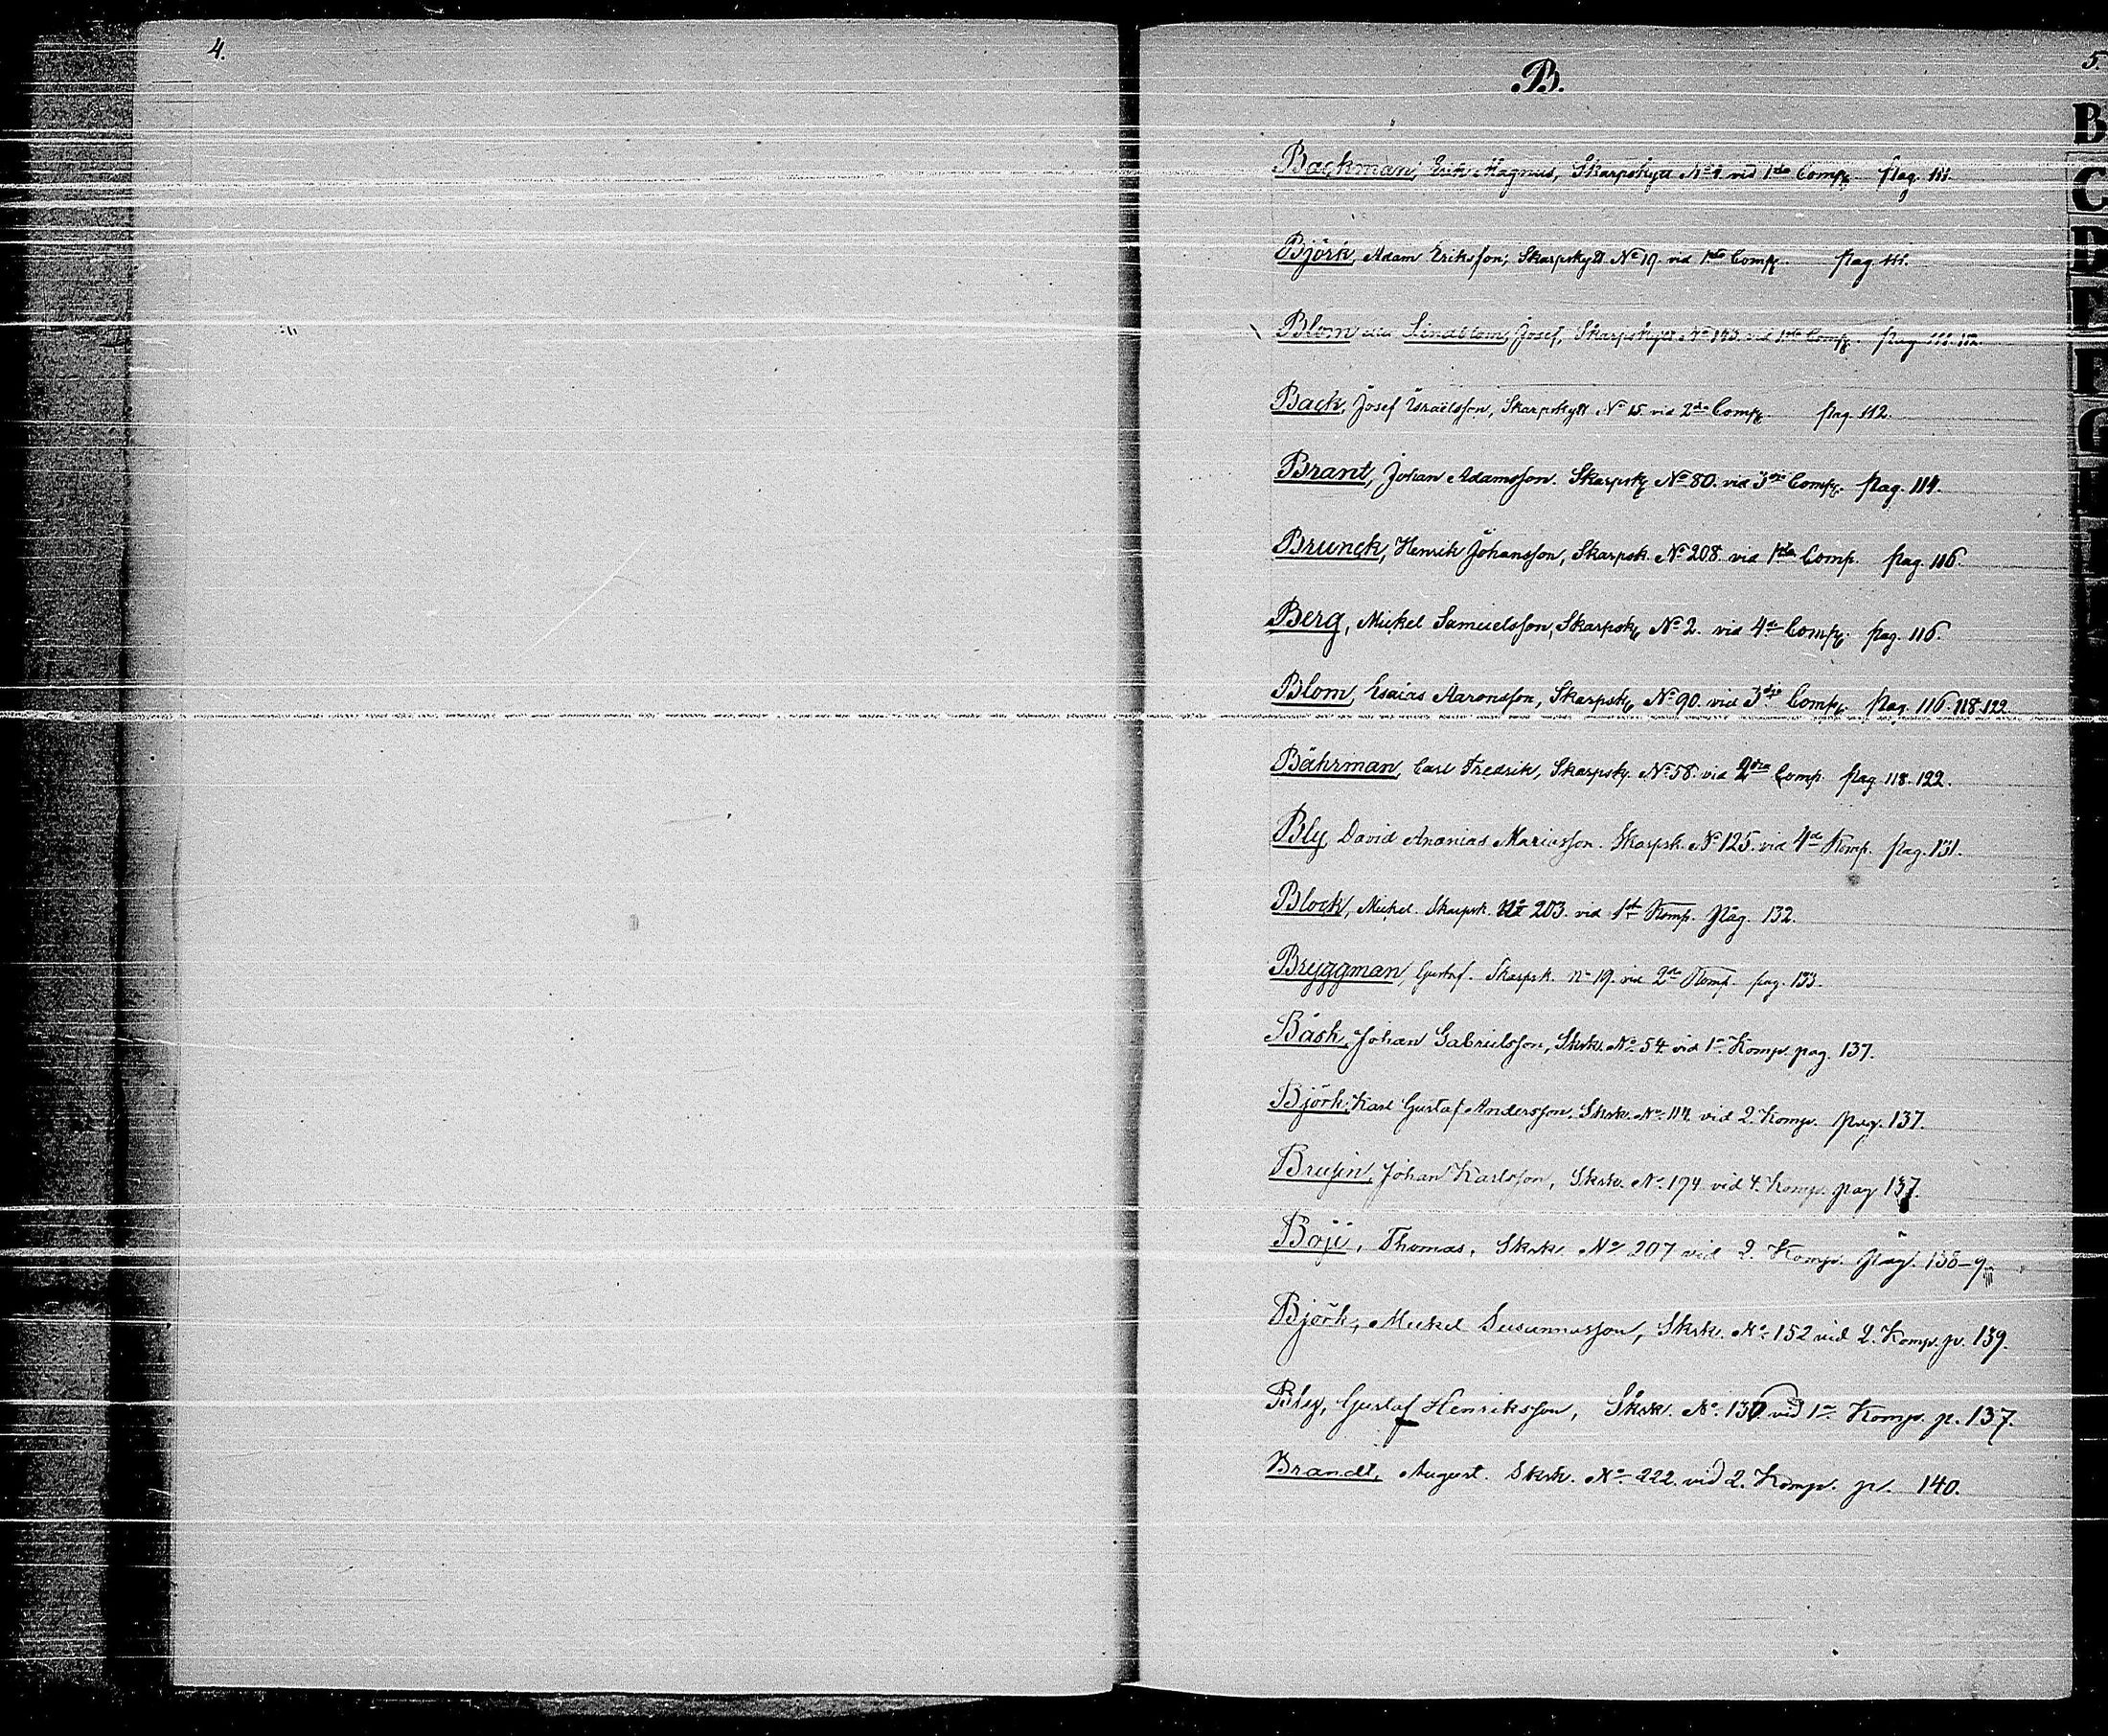 4.
5.
B.
Backman, Erik Magnus, Skarpskytt No 4 vid 1sta Comp. pag. 111.
Björk, Adam Eriksson, Skarpskytt No 19 vid 1sta Comp. pag. 111.
Blom eller Lindblom, Josef, Skarpskytt No 143 vid 1sta Comp. pag. 111. 112.
Back, Josef Israelsson, Skarpskytt No 15 vid 2dra Comp. pag. 112.
Brant, Johan Adamsson. Skarpsk. No 80. vid 3dje Comp. pag. 114.
Brunck, Henrik Johansson, Skarpsk. No 208. vid 1sta Comp. pag. 116.
Berg, Mickel Samuelsson, Skarpsk. No 2. vid 4de Comp. pag. 116.
Blom, Esaias Aaronsson, Skarpsk. No 90. vid 3dje Comp. pag. 116. 118. 122.
Bährman, Carl Fredrik, Skarpsk. No 58. vid 2dra Comp. pag. 118. 122.
Bly, David Ananias Mariasson. Skarpsk. No 125. vid 4de Komp. pag. 131.
Block, Mickel. Skarpsk. No 203. vid 1st Komp. pag. 132.
Bryggman, Gustaf. Skarpsk. no 19. vid 2dra Komp. pag. 133.
Bäsk, Johan Gabrielsson, Skrk. No 54 vid 1a Komp. pag. 137.
Björk, Karl Gustaf Andersson. Skrk. No 114. vid 2. Komp. pag. 137.
Brusin, Johan Karlsson, Skrk. No. 174 vid 4. Komp. pag 137.
Böje, Thomas, Skrk. No 207 vid 2. Komp. pag. 138-9.
Björk, Mickel Susannasson, Skrk. No. 152 vid 2. Komp. p. 139.
Bly, Gustaf Henriksson, Skrk. No. 136 vid 1a Komp. p. 137.
Brandt, August. Skrk. No 222. vid 2. Komp. p. 140.
B
C
D
E
F
G